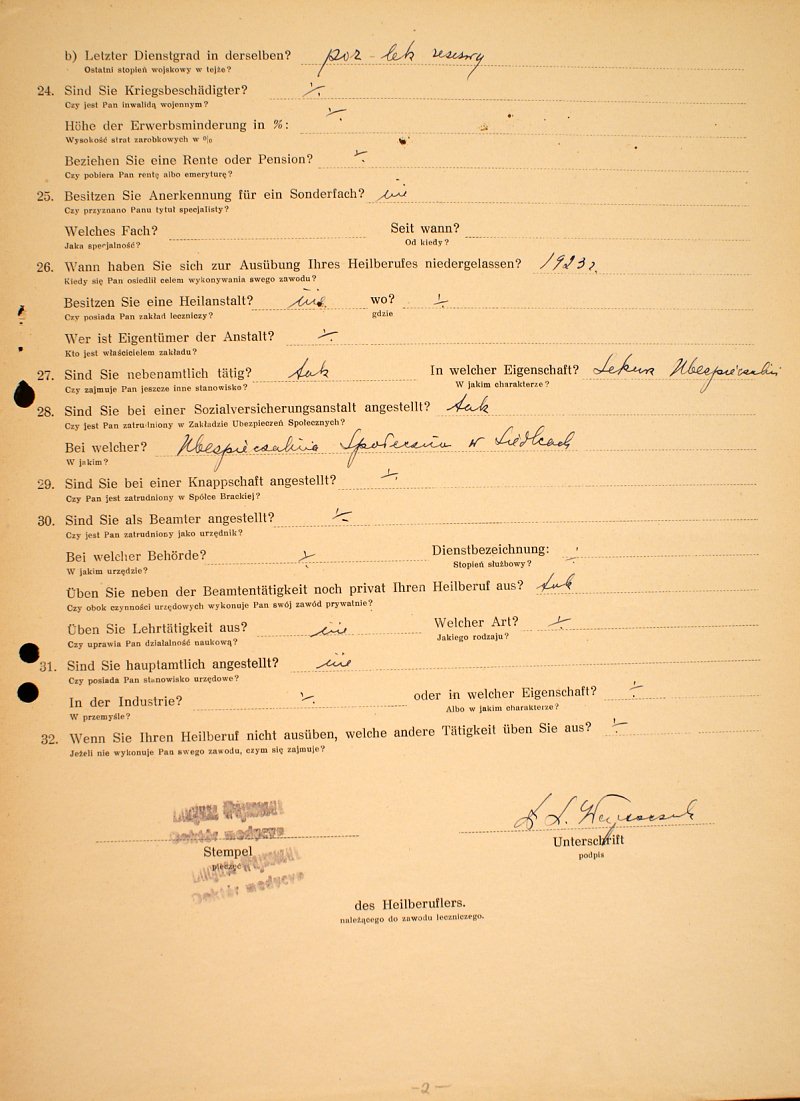 b) Letzter Dienstgrad in derselben? por - lek rezerwy
Ostatni stopień wojskowy w tejże?
24. Sind Sie Kriegsbeschädigter? ·/.
Czy jest Pan inwalidą wojennym?
Höhe der Erwerbsminderung in %: ·/.
Wysokość strat zarobkowych w %
Beziehen Sie eine Rente oder Pension? ·/.
Czy pobiera Pan rentę albo emeryturę?
25. Besitzen Sie Anerkennung für ein Sonderfach? nie
Czy przyznano Panu tytuł specjalisty?
Welches Fach? Seit wann?
Jaka specjalność? Od kiedy?
26. Wann haben Sie sich zur Ausübung Ihres Heilberufes niedergelassen? 1923 r.
Kiedy się Pan osiedlił celem wykonywania swego zawodu?
Besitzen Sie eine Heilanstalt? nie wo? ·/.
Czy posiada Pan zakład leczniczy? gdzie
Wer ist Eigentümer der Anstalt? ·/.
Kto jest właścicielem zakładu?
27. Sind Sie nebenamtlich tätig? tak In welcher Eigenschaft? Lekarz Ubezpieczalni
Czy zajmuje Pan jeszcze inne stanowisko? W jakim charakterze?
28. Sind Sie bei einer Sozialversicherungsanstalt angestellt? tak
Czy jest Pan zatrudniony w Zakładzie Ubezpieczeń Społecznych?
Bei welcher? Ubezpieczalnia Społeczna w Siedlcach
W jakim?
29. Sind Sie bei einer Knappschaft angestellt? ·/.
Czy Pan jest zatrudniony w Spółce Brackiej?
30. Sind Sie als Beamter angestellt? ·/.
Czy jest Pan zatrudniony jako urzędnik?
Bei welcher Behörde? ·/. Dienstbezeichnung: ·/.
W jakim urzędzie? Stopień służbowy?
Üben Sie neben der Beamtentätigkeit noch privat Ihren Heilberuf aus? tak
Czy obok czynności urzędowych wykonuje Pan swój zawód prywatnie?
Üben Sie Lehrtätigkeit aus? nie Welcher Art? ·/.
Czy uprawia Pan działalność naukową? Jakiego rodzaju?
31. Sind Sie hauptamtlich angestellt? nie
Czy posiada Pan stanowisko urzędowe?
In der Industrie? ·/. oder in welcher Eigenschaft? ·/.
W przemyśle? Albo w jakim charakterze?
32. Wenn Sie Ihren Heilberuf nicht ausüben, welche andere Tätigkeit üben Sie aus? ·/.
Jeżeli nie wykonuje Pan swego zawodu, czym się zajmuje?
Doktór medycyny
Stempel Unterschrift
pieczęć podpis
Doktór medycyny
des Heilberuflers.
należącego do zawodu leczniczego.
-2-